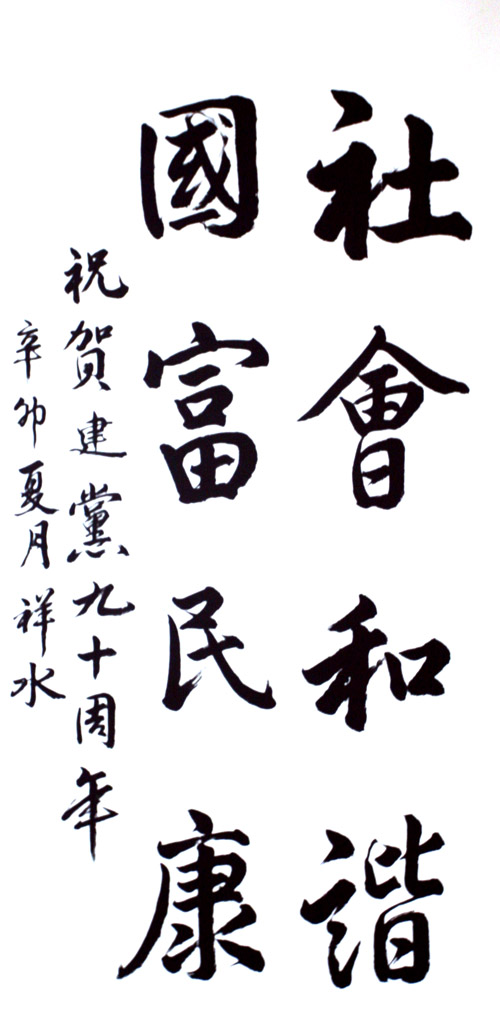 社會和諧
國富民康
祝賀建黨九十周年
辛卯夏月祥水